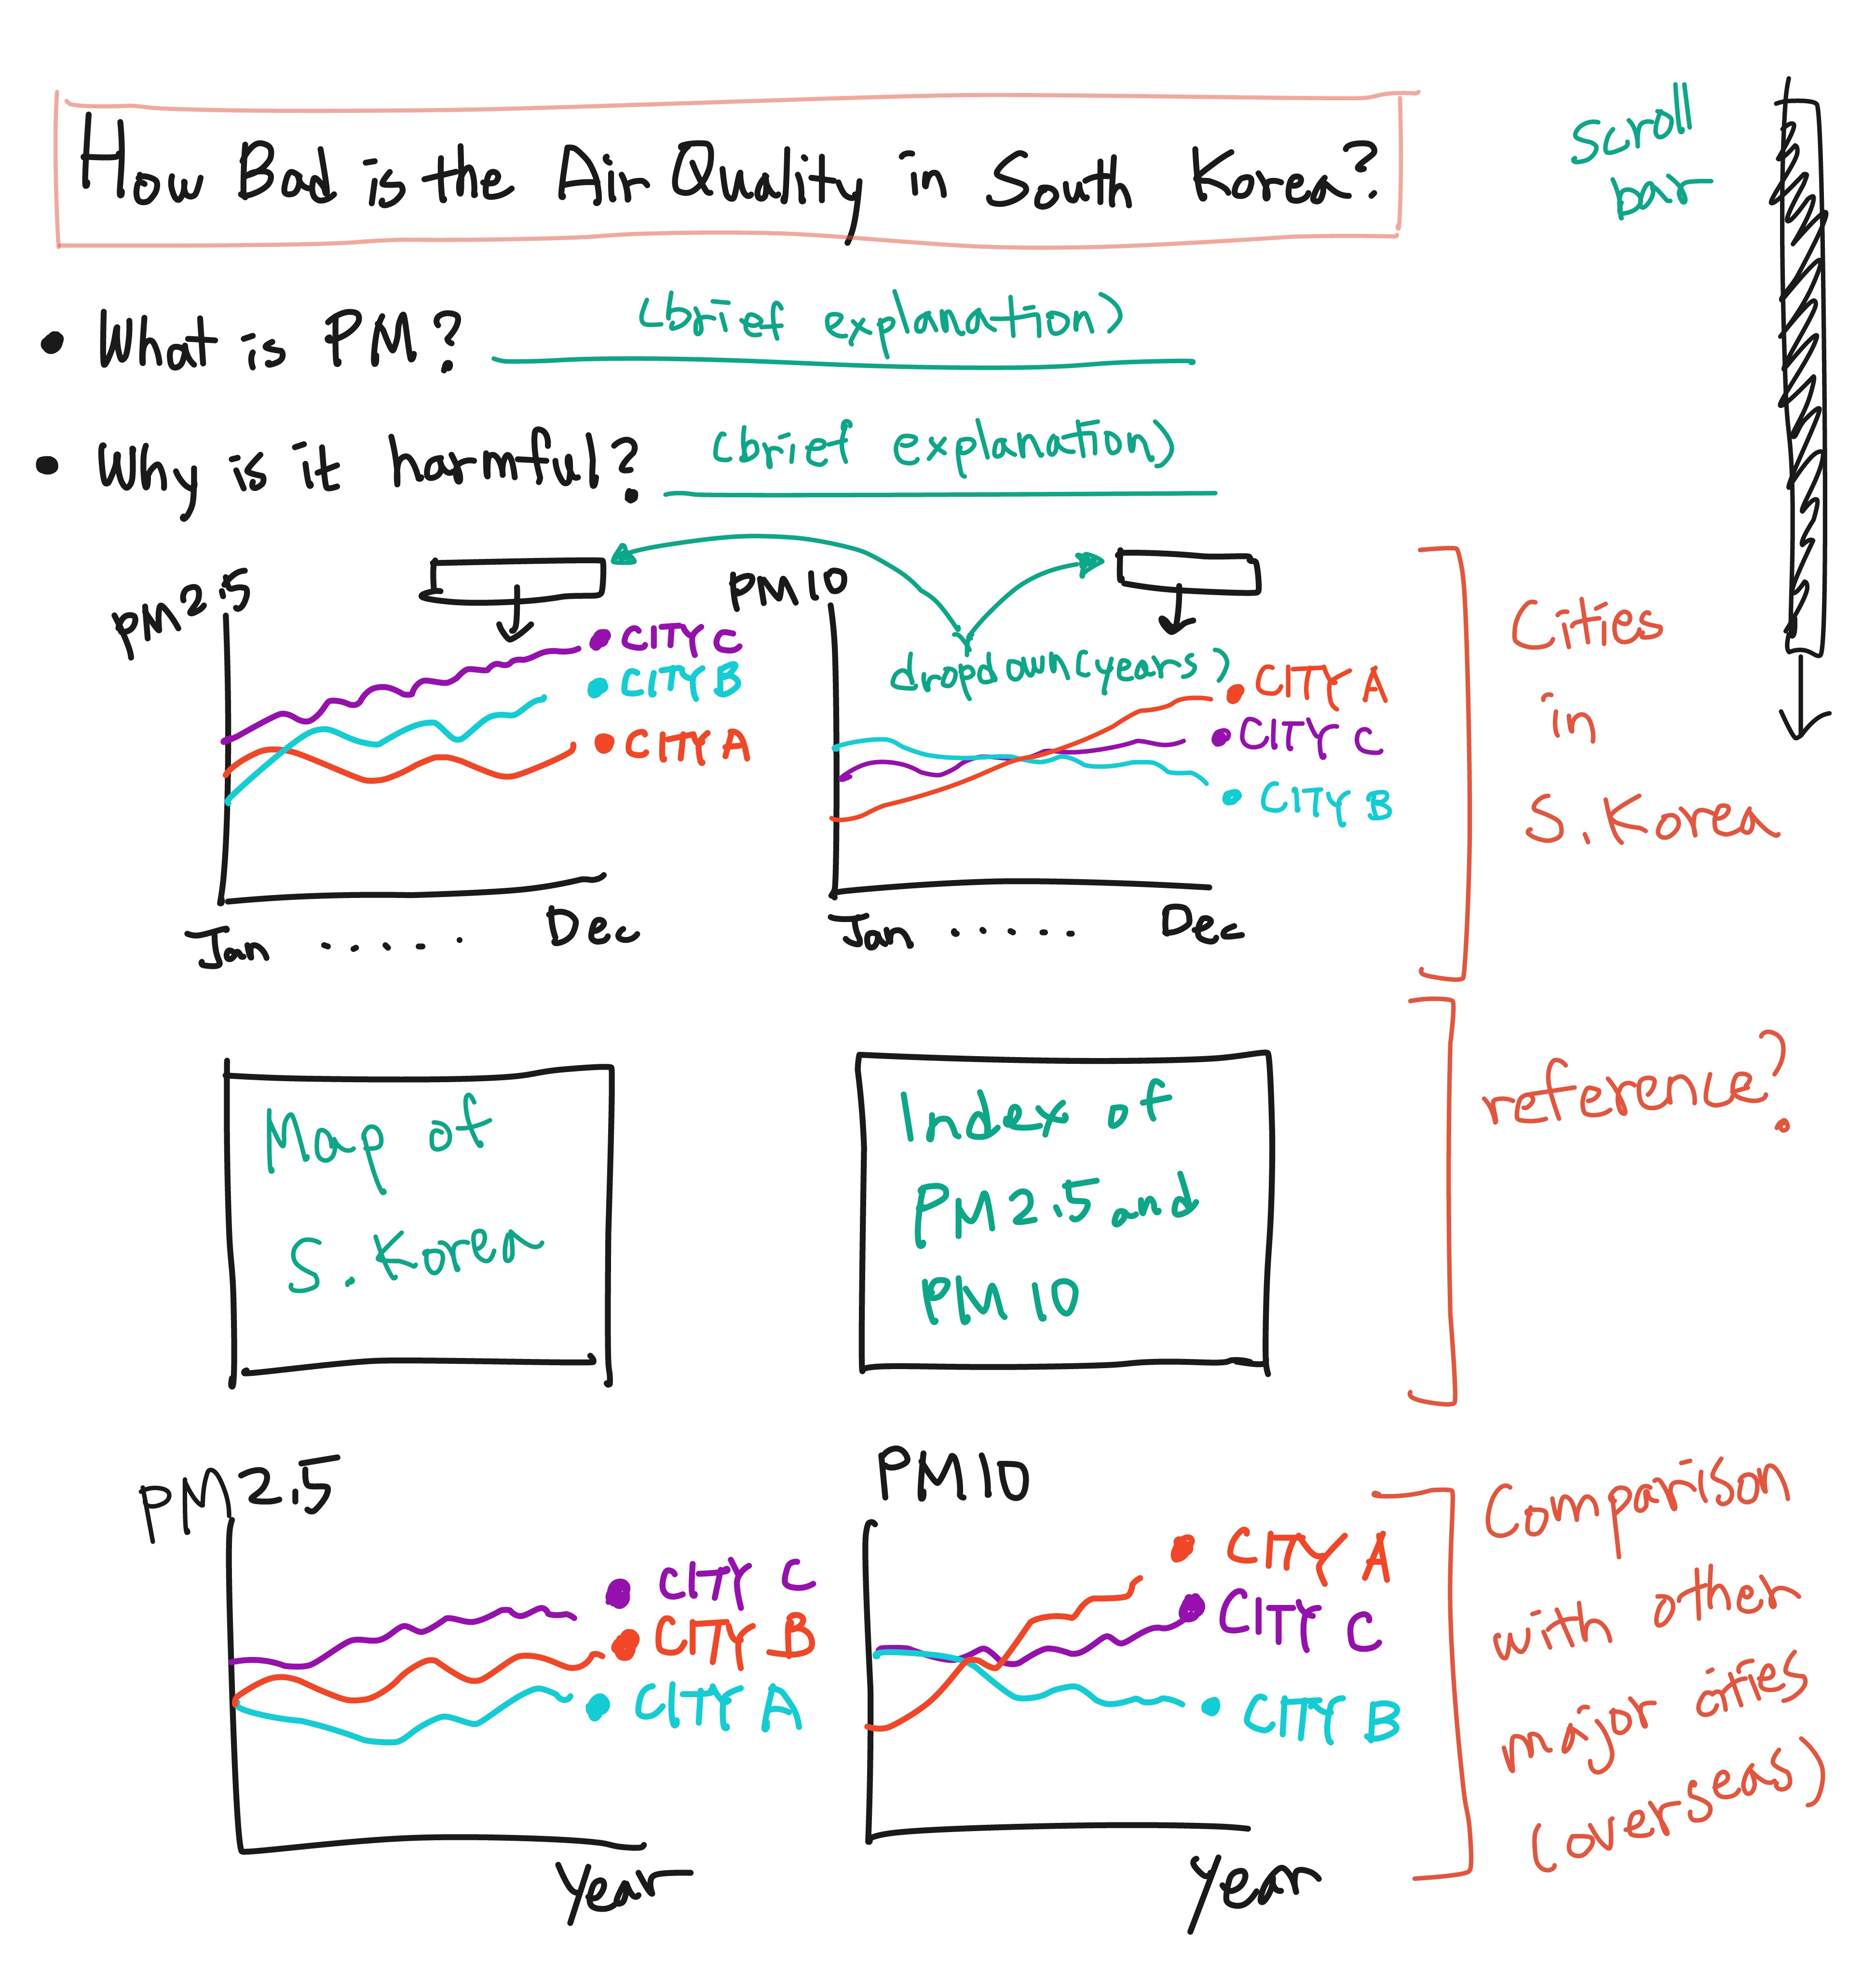 How Bad is the Air Quality in South Korea?
scroll
bar
• What is PM? (brief explanation)
• Why is it harmful? (brief explanation)
PM2.5
CITY C
CITY B
CITY A
Jan ...... Dec
PM10
dropdown(years)
CITY A
CITY C
CITY B
Jan ..... Dec
Cities
in
S. Korea
Map of
S. Korea
Index of
PM2.5 and
PM10
reference?
PM2.5
CITY C
CITY B
CITY A
Year
PM10
CITY A
CITY C
CITY B
Year
Comparison
with other
major cities
(overseas)